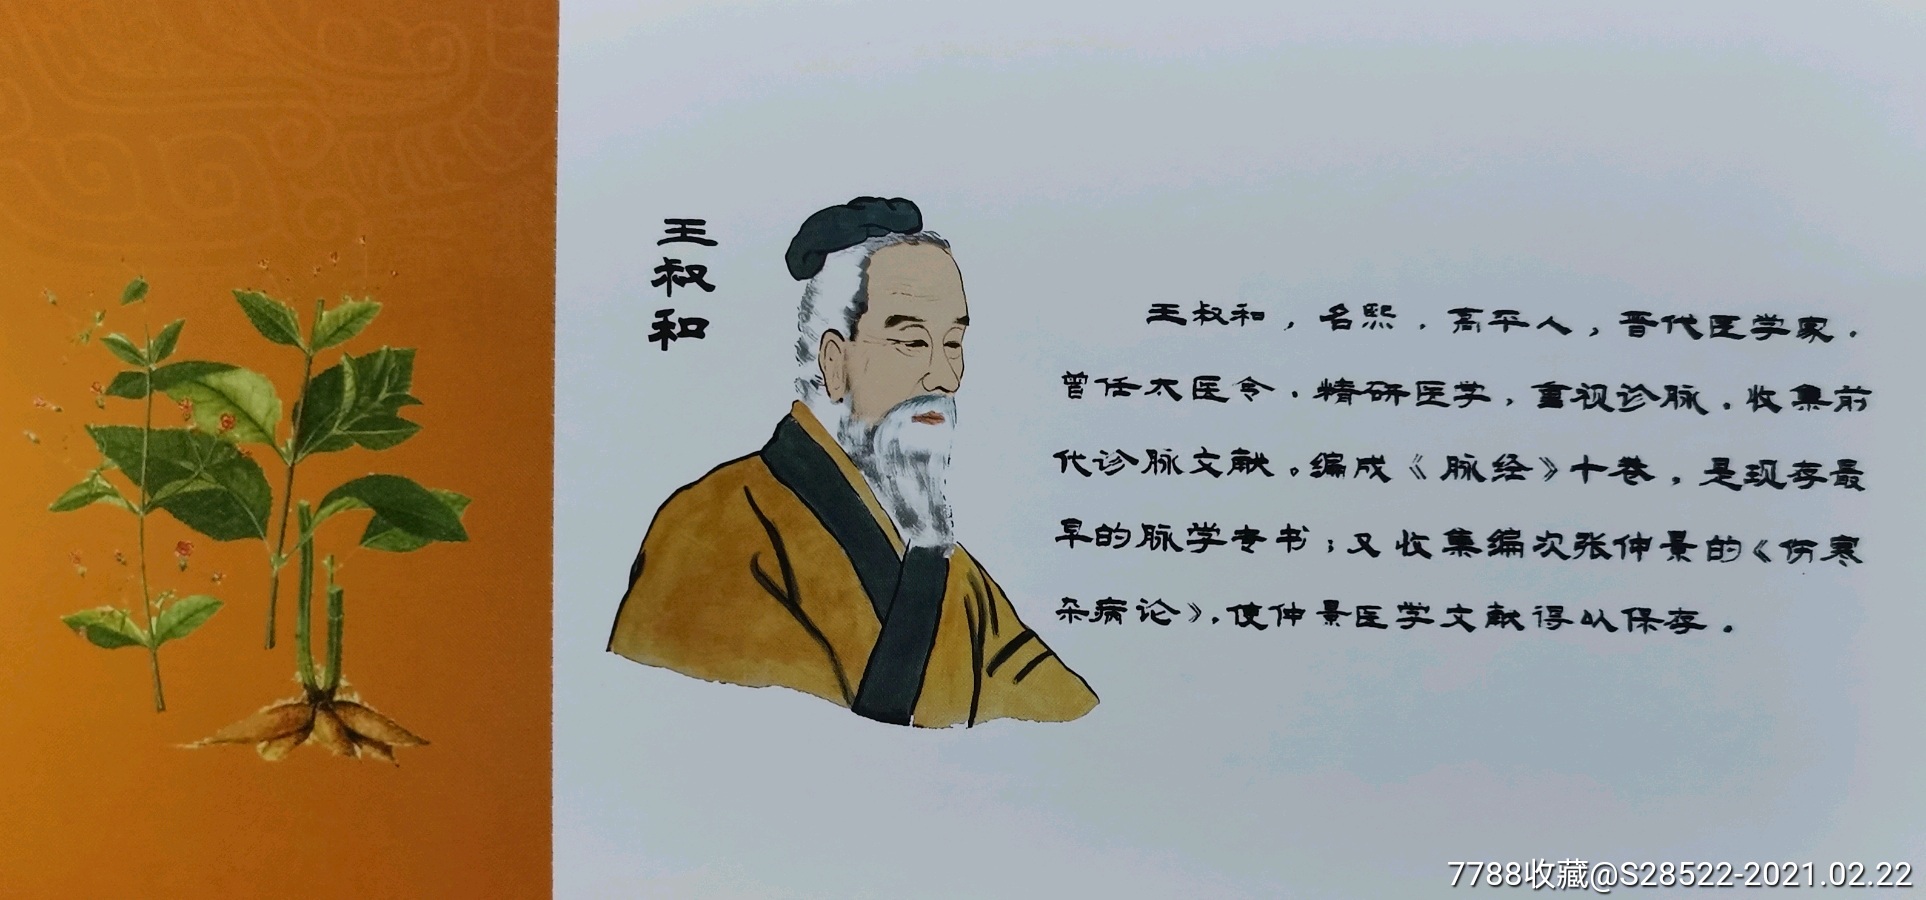 王叔和
王叔和，名熙，高平人，晋代医学家。
曾任太医令，精研医学，重视诊脉，收集前
代诊脉文献。编成《脉经》十卷，是现存最
早的脉学专书；又收集编次张仲景的《伤寒
杂病论》，使仲景医学文献得以保存。
7788收藏@S28522-2021.02.22